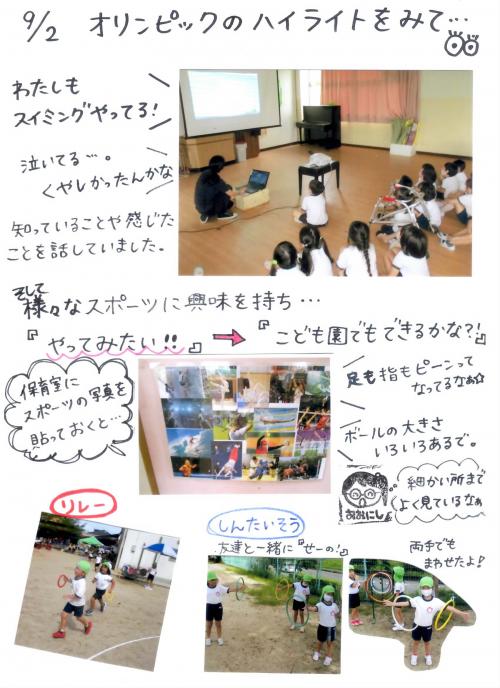 9/2 オリンピックのハイライトをみて…
わたしも
スイミングやってる!
泣いてる…。
くやしかったんかな
知っていることや感じた
ことを話していました。
そして
様々なスポーツに興味を持ち…
『やってみたい!!』→『こども園でもできるかな?!』
保育室に
スポーツの写真を
貼っておくと…
足も指もピーンって
なってるなぁ☆
ボールの大きさ
いろいろあるで。
あおにし
細かい所まで
よく見ているなぁ
リレー
しんたいそう
友達と一緒に『せーの!』
両手でも
まわせたよ!